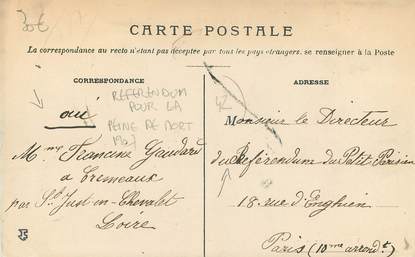 30€
CARTE POSTALE
La correspondance au recto n'étant pas acceptée par tous les pays étrangers, se renseigner à la Poste
CORRESPONDANCE
oui
REFERENDUM
POUR LA
PEINE DE MORT
Mme Francine Gaudard
a Cremeaux
par St Just-en-Chevalet
Loire
ADRESSE
42
Monsieur le Directeur
du Référendum du Petit Parisien
18 rue d'Enghien
Paris (10me arrondt)